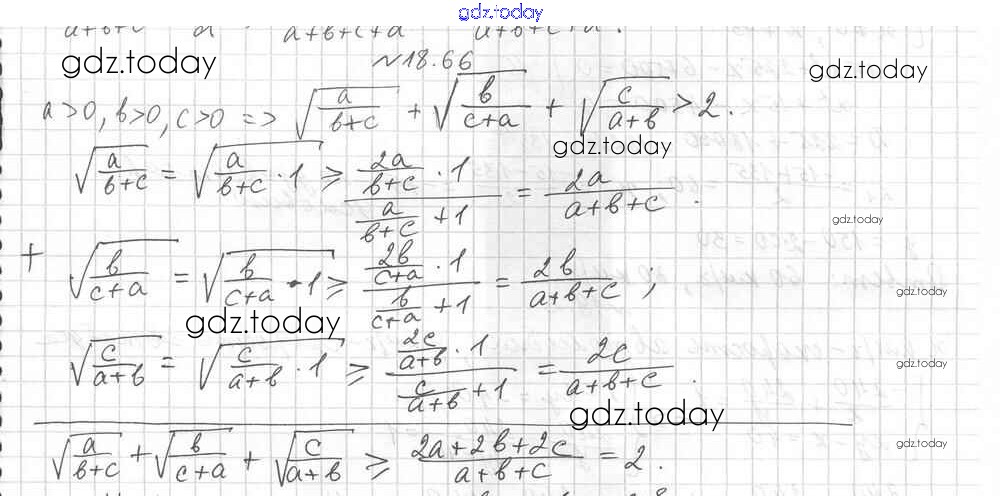 gdz.today
a+b+c a a+b+c+a a+b+c+a.
gdz.today №18.66 gdz.today
a>0, b>0, c>0 => √(a/(b+c)) + √(b/(c+a)) + √(c/(a+b)) > 2.
gdz.today
√(a/(b+c)) = √(a/(b+c) · 1) ≥ (2a/(b+c) · 1)/(a/(b+c) + 1) = 2a/(a+b+c).
gdz.today
+ √(b/(c+a)) = √(b/(c+a) · 1) ≥ (2b/(c+a) · 1)/(b/(c+a) + 1) = 2b/(a+b+c);
gdz.today
gdz.today
√(c/(a+b)) = √(c/(a+b) · 1) ≥ (2c/(a+b) · 1)/(c/(a+b) + 1) = 2c/(a+b+c).
gdz.today
gdz.today
√(a/(b+c)) + √(b/(c+a)) + √(c/(a+b)) ≥ (2a+2b+2c)/(a+b+c) = 2.
gdz.today